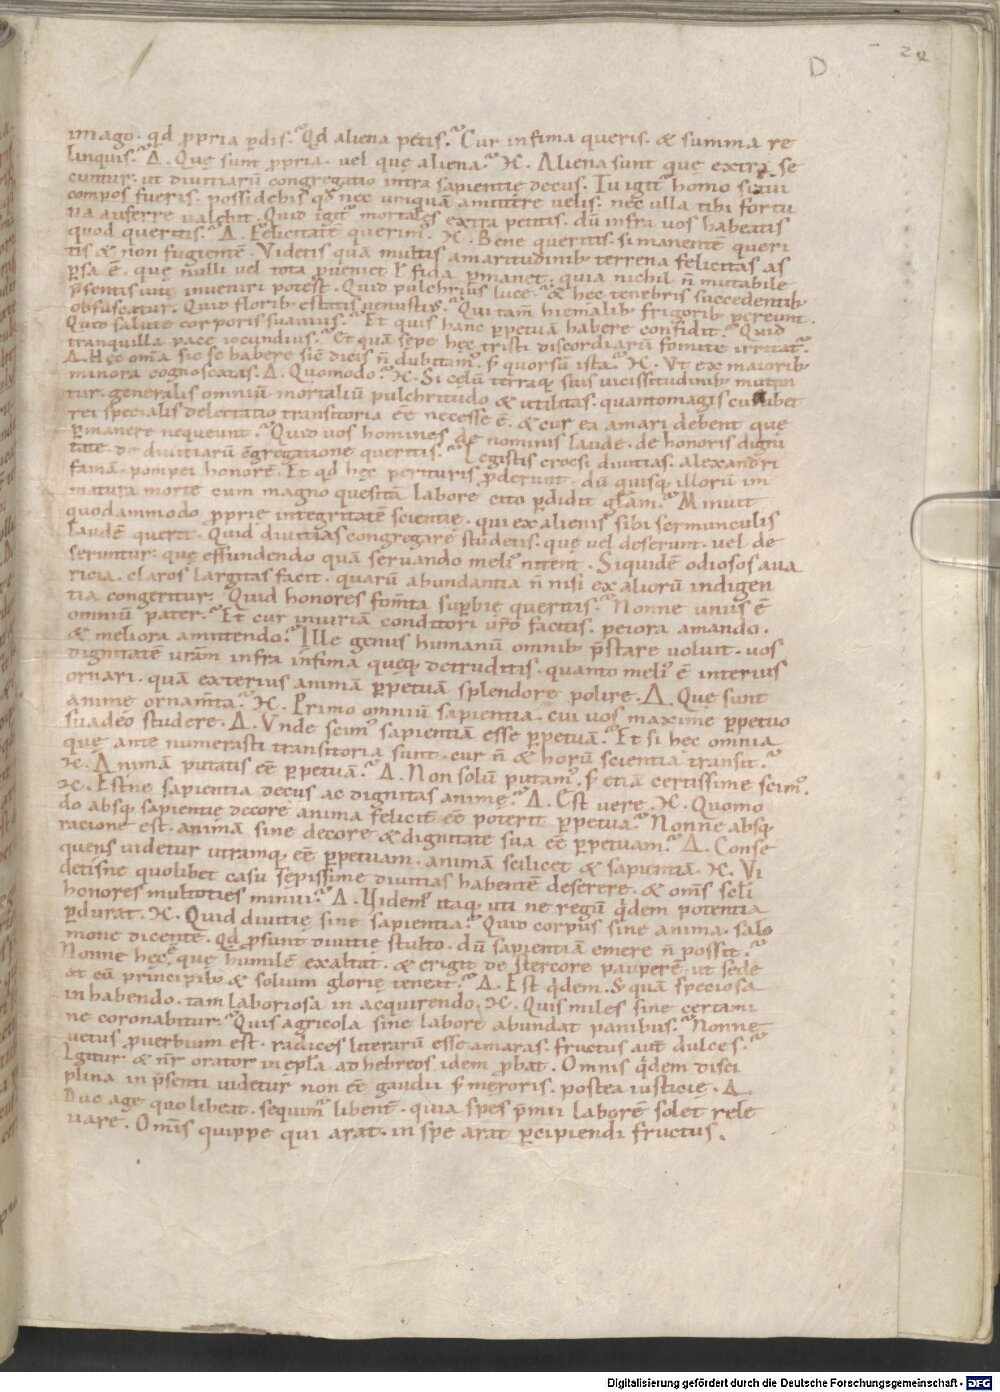 D 24
imago. qd ꝓpria ꝑdis. Qd aliena petis. Cur infima queris. & summa re
linquis. Δ. Quę sunt ꝓpria. uel quę aliena. M. Aliena sunt que extra se
cuntur. ut diuitiarū congregatio intra sapientie decus. Tu igit homo si tui
compos fueris. possidebis qd nec umquā amittere uelis. nec ulla tibi fortu
na auferre ualebit. Quid igit mortales extra petitis. dū infra uos habeatis
quod queritis. Δ. Felicitatē querim'. M. Bene queritis. si manentē queri
tis & non fugientē. Videtis quā multis amaritudinib; terrena felicitas as
ꝑsa ē. que nulli uel tota ꝓueniet ł fida ꝑmanet. quia nichil n̄ mutabile
p̄sentis uitę inueniri potest. Quid pulchrius luce. & hec tenebris succedentib;
obfuscatur. Quid florib; estatis uenustius. Qui tam̄ hiemalib; frigorib; pereunt.
Quid salute corporis suauius. Et quis hanc ꝑpetuā habere confidit. Quid
tranquilla pace iocundius. Et quā sepe hęc tristi discordiarū fomite irritat.
Δ. Hęc om̄a sic se habere sic̄ dicis n̄ dubitam'. s; quorsū ista. M. Vt ex maiorib;
minora cognoscatas. Δ. Quomodo. M. Si celū terraq; suis uicissitudinib; mutan
tur. generalis omniū mortaliū pulchritudo & utilitas. quantomagis cuiuibet
rei specialis delectatio transitoria eē necesse ē. & cur ea amari debent quę
ꝑmanere nequeunt. Quid uos homines de nominis laude. de honoris digni
tate. de diuitiarū ꝯgregatione queritis. Legistis croesi diuitias. alexandri
famā. pompei honorē. Et qd hęc perituris ꝓderunt. dū quisq; illorū im
matura morte cum magno quesitā labore cito ꝑdidit gl̄am. Minuit
quodammodo ꝓprię integritatē scientię. qui ex alienis sibi sermunculis
laudē querit. Quid diuitias congregare studetis. quę uel deserunt. uel de
seruntur. quę effundendo quā seruando meli' nitent. Siquidē odiosos aua
ricia. claros largitas facit. quarū abundantia n̄ nisi ex aliorū indigen
tia congeritur. Quid honores fom̄ta suꝑbie queritis. Nonne unus ē
omniū pater. Et cur iniuriam conditori ur̄o facitis. peiora amando.
& meliora amittendo. Ille genus humanū omnib; p̄stare uoluit. uos
dignitatē ur̄am infra infima quęq; detruditis. quanto meli' ē interius
ornari. quā exterius animā ꝑpetuā splendore polire. Δ. Quę sunt
animę ornam̄ta. M. Primo omniū sapientia. cui uos maxime ꝑpetuo
suadeo studere. Δ. Vnde scim' sapientiam esse ꝑpetuā. Et si hec omnia
quę ante numerasti transitoria sunt. cur n̄ & horū scientia transit.
M. Animā putatis eē ꝑpetuā. Δ. Non solū putam'. s; etiā certissime scim'.
M. Estne sapientia decus ac dignitas animę. Δ. Est uere. M. Quomo
do absq; sapientię decore anima felicit̄ eē poterit ꝑpetua. Nonne absq;
racione est. animā sine decore & dignitate sua eē ꝑpetuam. Δ. Conse
quens uidetur utramq; eē ꝑpetuam. animā scilicet & sapientiā. M. Vi
detisne quolibet casu sepissime diuitias habentē deserere. & om̄s scl̄i
honores multoties minui. Δ. Videm' itaq; uti ne regū q̇dem potentia
ꝑdurat. M. Quid diuitię sine sapientia. Quid corpus sine anima. Salo
mone dicente. qd ꝓsunt diuitie stulto. dū sapientiā emere n̄ possit.
Nonne hęc ē quę humilē exaltat. & erigit de stercore pauperē. ut sede
at cū principib; & solium glorię teneat. Δ. Est q̇dem. s; quā speciosa
in habendo. tam laboriosa in acquirendo. M. Quis miles sine certami
ne coronabitur. Quis agricola sine labore abundat panibus. Nonne
uetus ꝓuerbium est. radices literarū esse amaras. fructus aut̄ dulces.
Igitur & nr̄ orator in epl̄a ad hebreos idem ꝓbat. Omnis q̇dem disci
plina in p̄senti uidetur non eē gaudii s; meroris. postea iusticię. Δ
Duc age quo libeat. sequim' libent̄. quia spes p̄mii laborē solet rele
uare. Om̄is quippe qui arat. in spe arat ꝑcipiendi fructus.
Digitalisierung gefördert durch die Deutsche Forschungsgemeinschaft - DFG